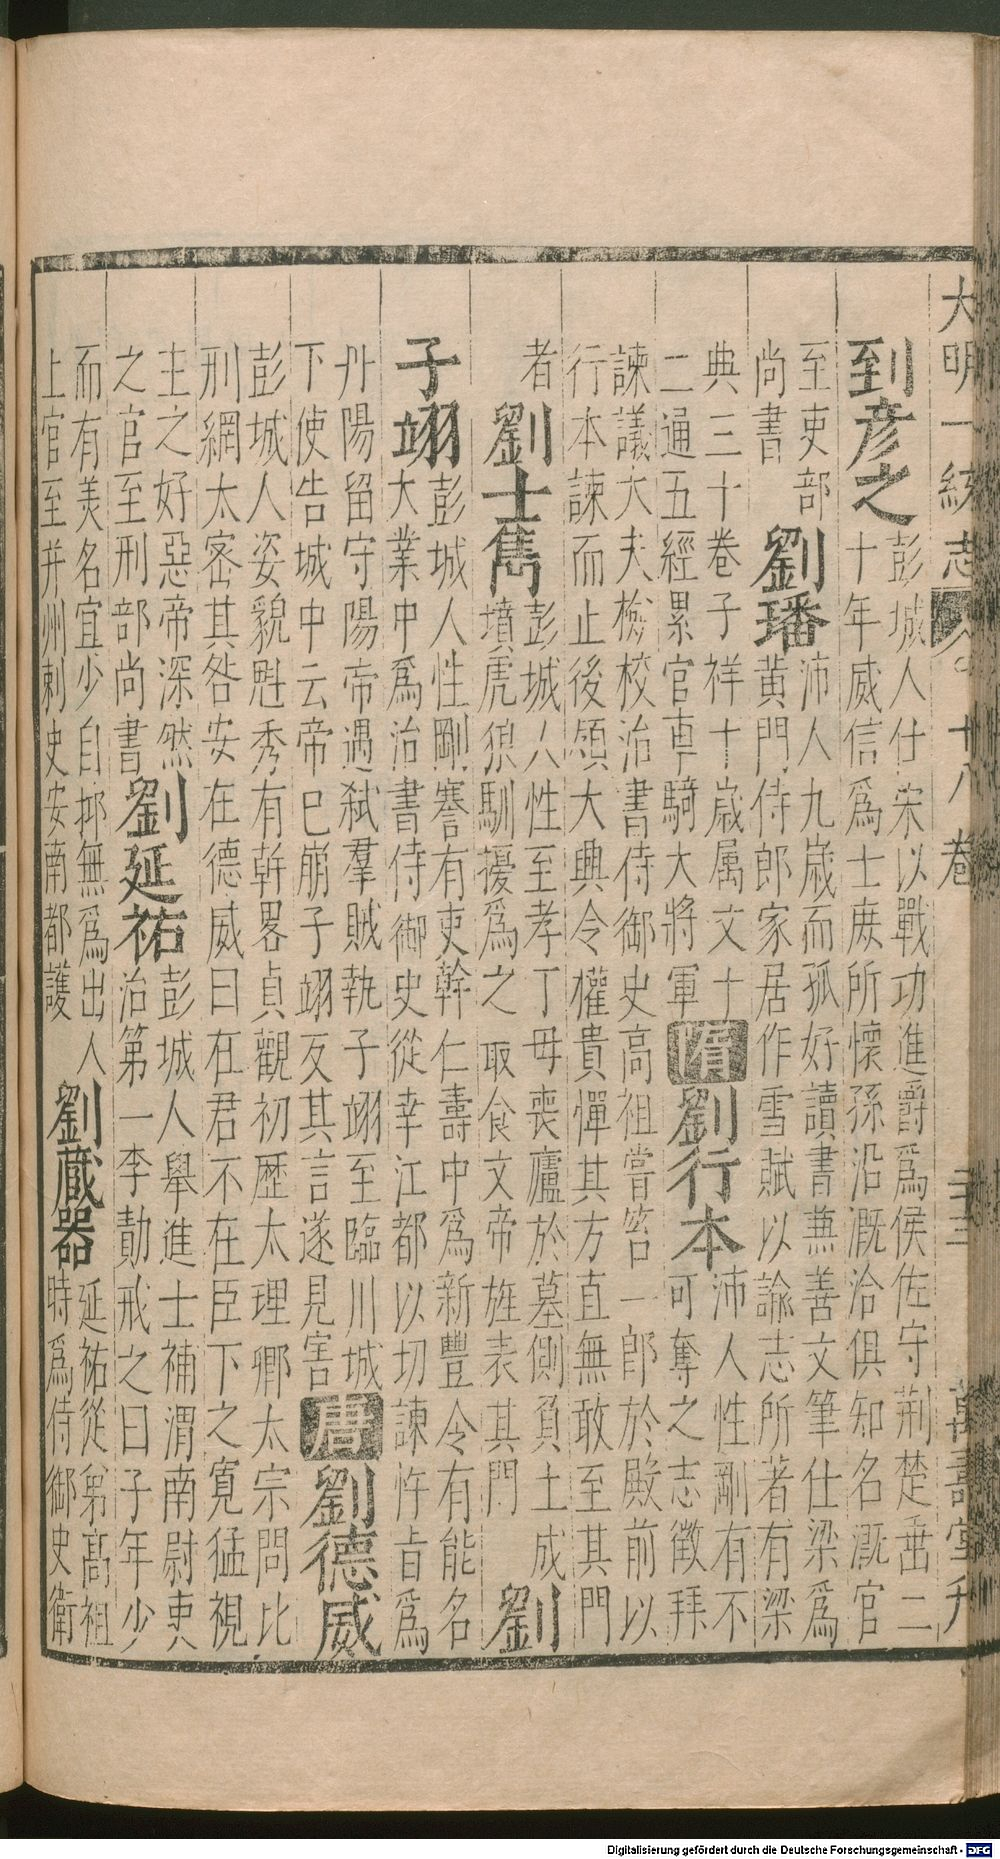 大明一統志 十八卷 萬壽堂刊
到彥之
彭城人仕宋以戰功進爵爲侯佐守荆楚垂二
十年威信爲士庶所懷孫沿溉洽俱知名溉官
至吏部
尚書
劉璠
沛人九歲而孤好讀書兼善文筆仕梁爲
黃門侍郎家居作雪賦以諭志所著有梁
典三十卷子祥十歲属文十
二通五經累官車騎大將軍
隋 劉行本
沛人性剛有不
可奪之志徵拜
諫議大夫檢校治書侍御史高祖嘗笞一郎於殿前以
行本諫而止後領大興令權貴憚其方直無敢至其門
者
劉士雋
彭城人性至孝丁母喪廬於墓側負土成
墳虎狼馴擾爲之取食文帝旌表其門
劉
子翊
彭城人性剛謇有吏幹仁壽中爲新豐令有能名
大業中爲治書侍御史從幸江都以切諫忤旨爲
丹陽留守陽帝遇弒羣賊執子翊至臨川城
下使告城中云帝巳崩子翊反其言遂見害
唐 劉德威
彭城人姿貌魁秀有幹畧貞觀初歷太理卿太宗問比
刑網太密其咎安在德威曰在君不在臣下之寬猛視
主之好惡帝深然
之官至刑部尚書
劉延祐
彭城人舉進士補渭南尉吏
治第一李勣戒之曰子年少
而有美名宜少自抑無爲出人
上官至并州刺史安南都護
劉藏器
延祐從弟高祖
時爲侍御史衛
Digitalisierung gefördert durch die Deutsche Forschungsgemeinschaft - DFG